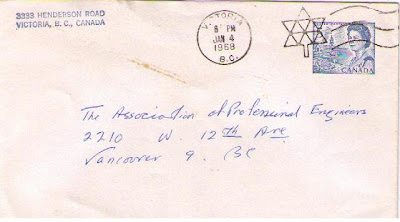 3333 HENDERSON ROAD
VICTORIA, B. C., CANADA
VICTORIA
PM
JAN 4
1968
B.C.
CANADA
The Association of Professional Engineers
2210 W. 12th Ave
Vancouver 9. BC